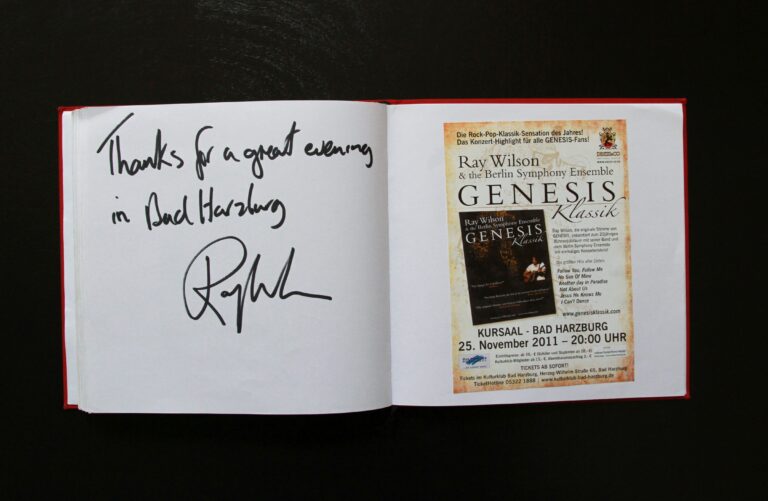 Thanks for a great evening
in Bad Harzburg
Ray Wilson
Die Rock-Pop-Klassik-Sensation des Jahres!
Das Konzert-Highlight für alle GENESIS-Fans!
Ray Wilson
& the Berlin Symphony Ensemble
GENESIS
Klassik
Ray Wilson
& the Berlin Symphony Ensemble
GENESIS
Klassik
Ray Wilson, die originale Stimme von
GENESIS, präsentiert zum 20jährigen
Bühnenjubiläum mit seiner Band und
dem Berlin Symphony Ensemble
ein einmaliges Konzerterlebnis!
Die größten Hits aller Zeiten:
Follow You, Follow Me
No Son Of Mine
Another Day in Paradise
Not About Us
Jesus He Knows Me
I Can't Dance
www.genesisklassik.com
KURSAAL - BAD HARZBURG
25. November 2011 – 20:00 UHR
TICKETS AB SOFORT!
Tickets im Kulturklub Bad Harzburg, Herzog Wilhelm Straße 65, Bad Harzburg
TicketHotline 05322 1888 | www.kulturklub-bad-harzburg.de